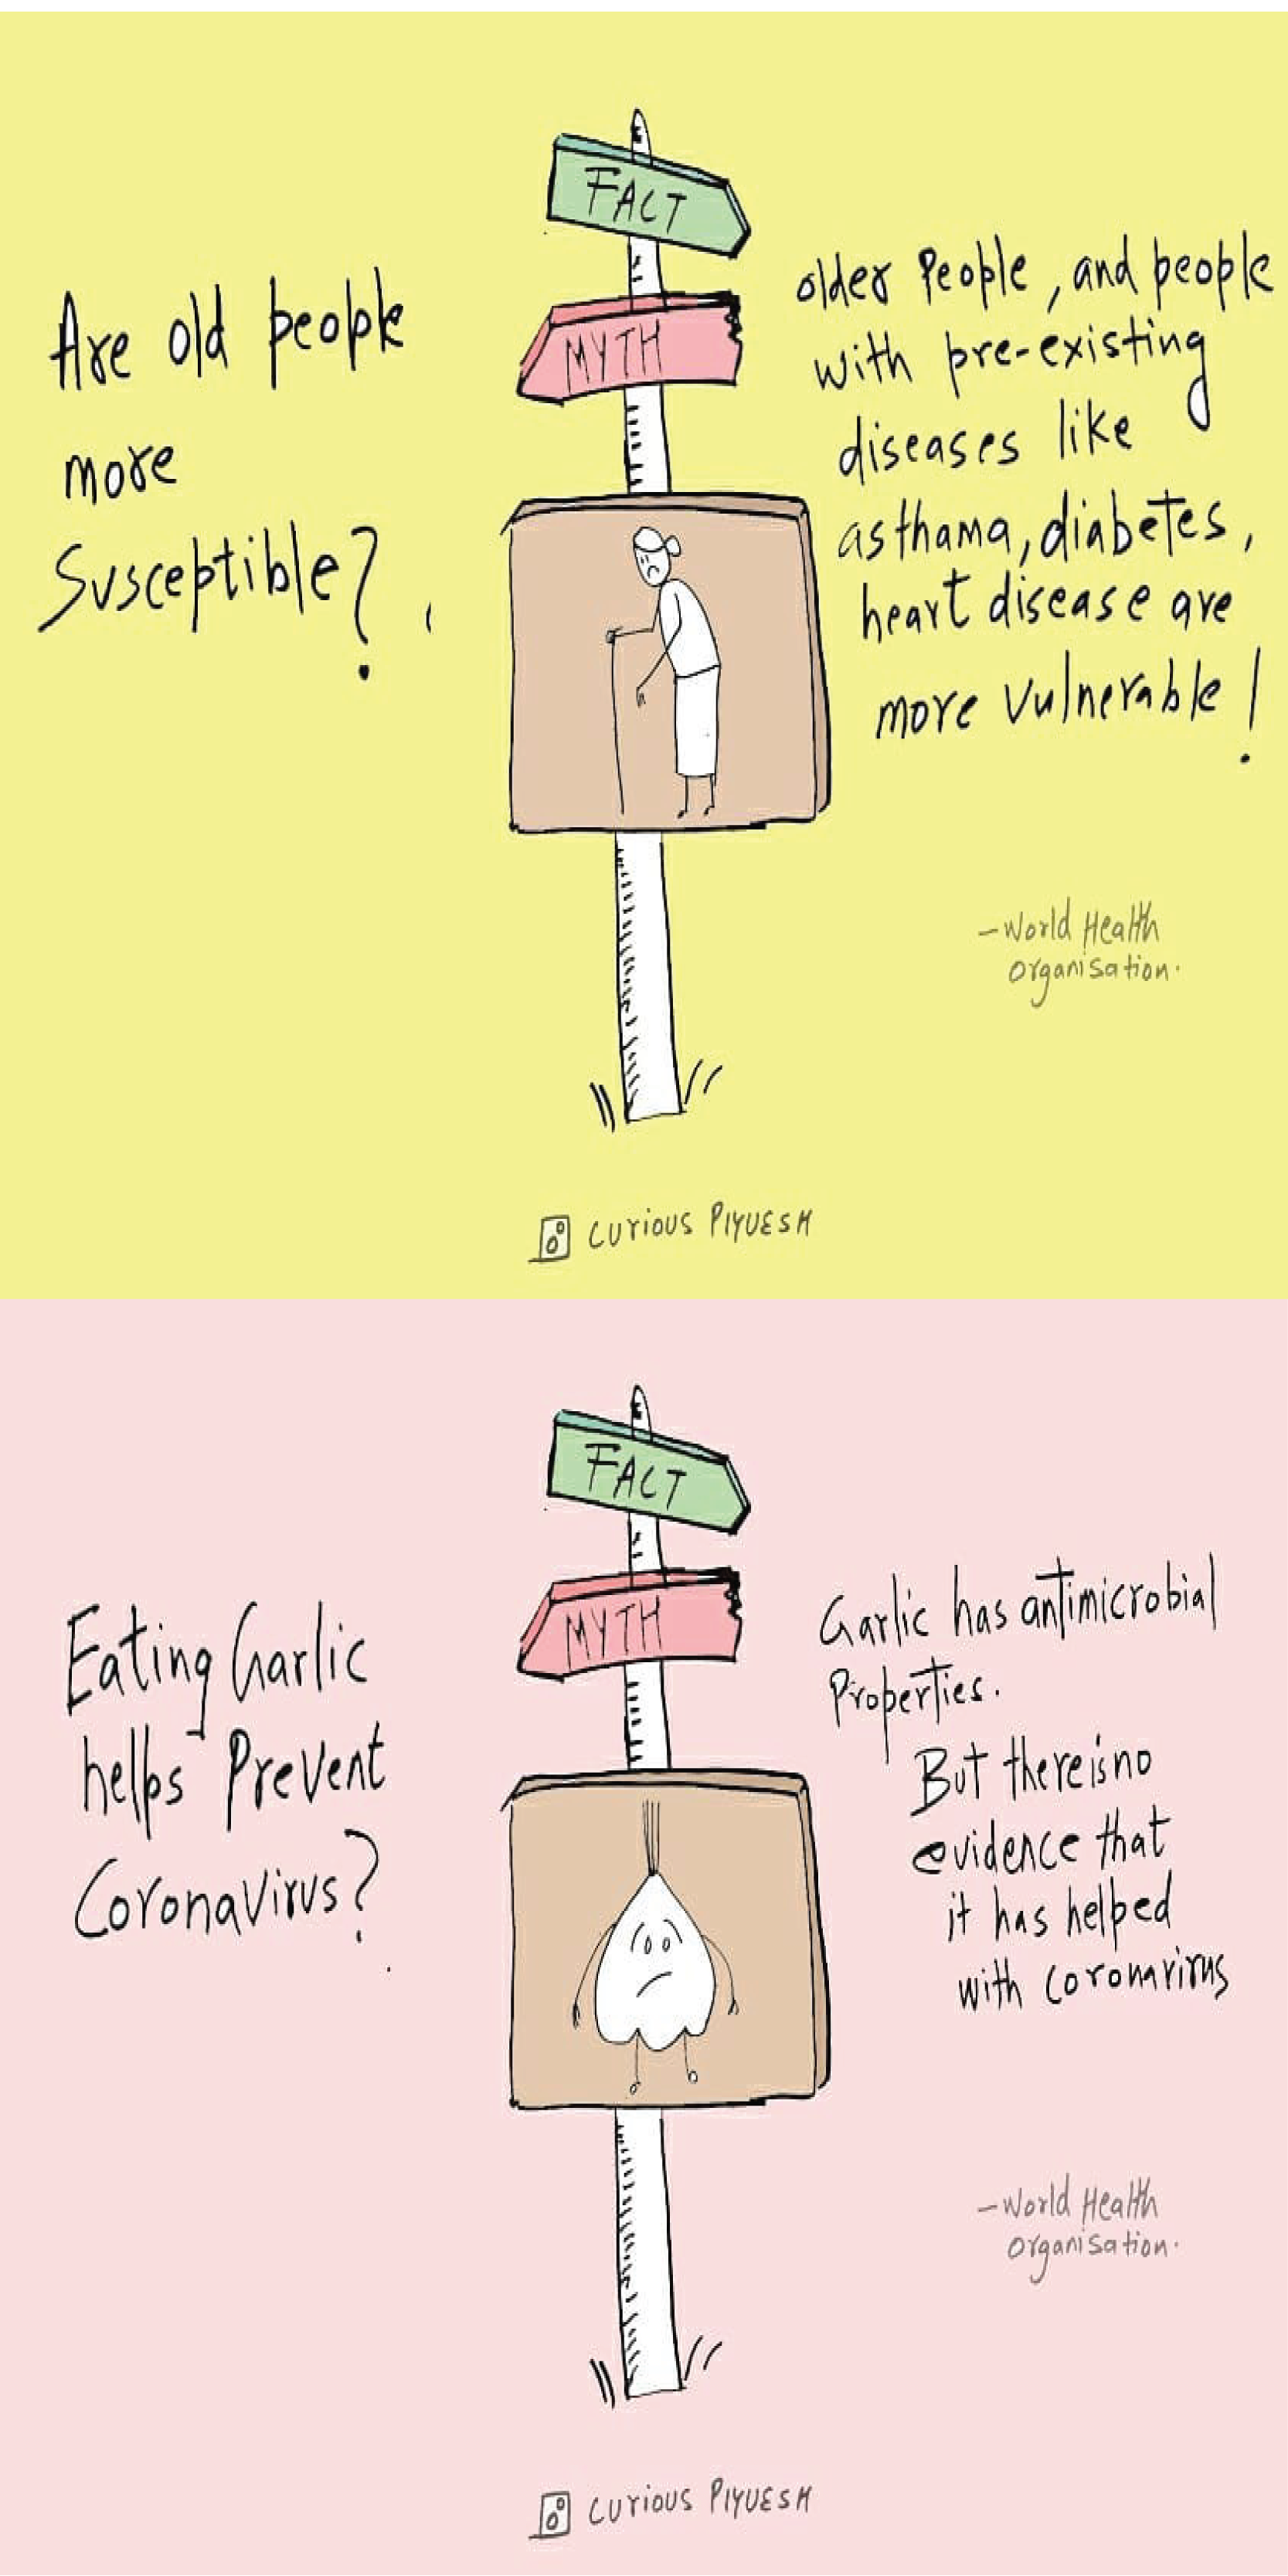 FACT
MYTH
Are old people
more
Susceptible?
older People, and people
with pre-existing
diseases like
asthama, diabetes,
heart disease are
more vulnerable!
- World Health
organisation.
CURIOUS PIYUESH
FACT
MYTH
Eating Garlic
helps Prevent
CoronaVirus?
Garlic has antimicrobial
Properties.
But there is no
evidence that
it has helped
with coronavirus
- World Health
organisation.
CURIOUS PIYUESH